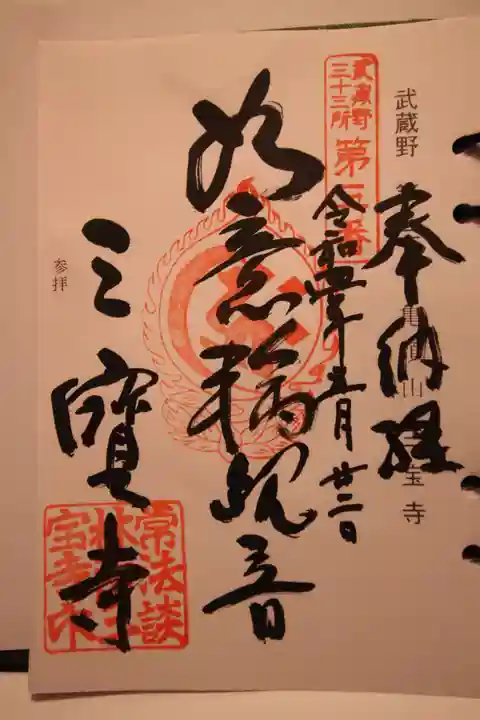 武蔵野
亀頂山 三宝寺
武蔵野
三十三所
第三番
奉納経
令和四年五月廿二日
如意輪観音
三寳寺
参拝
常法談
林三
宝寺印